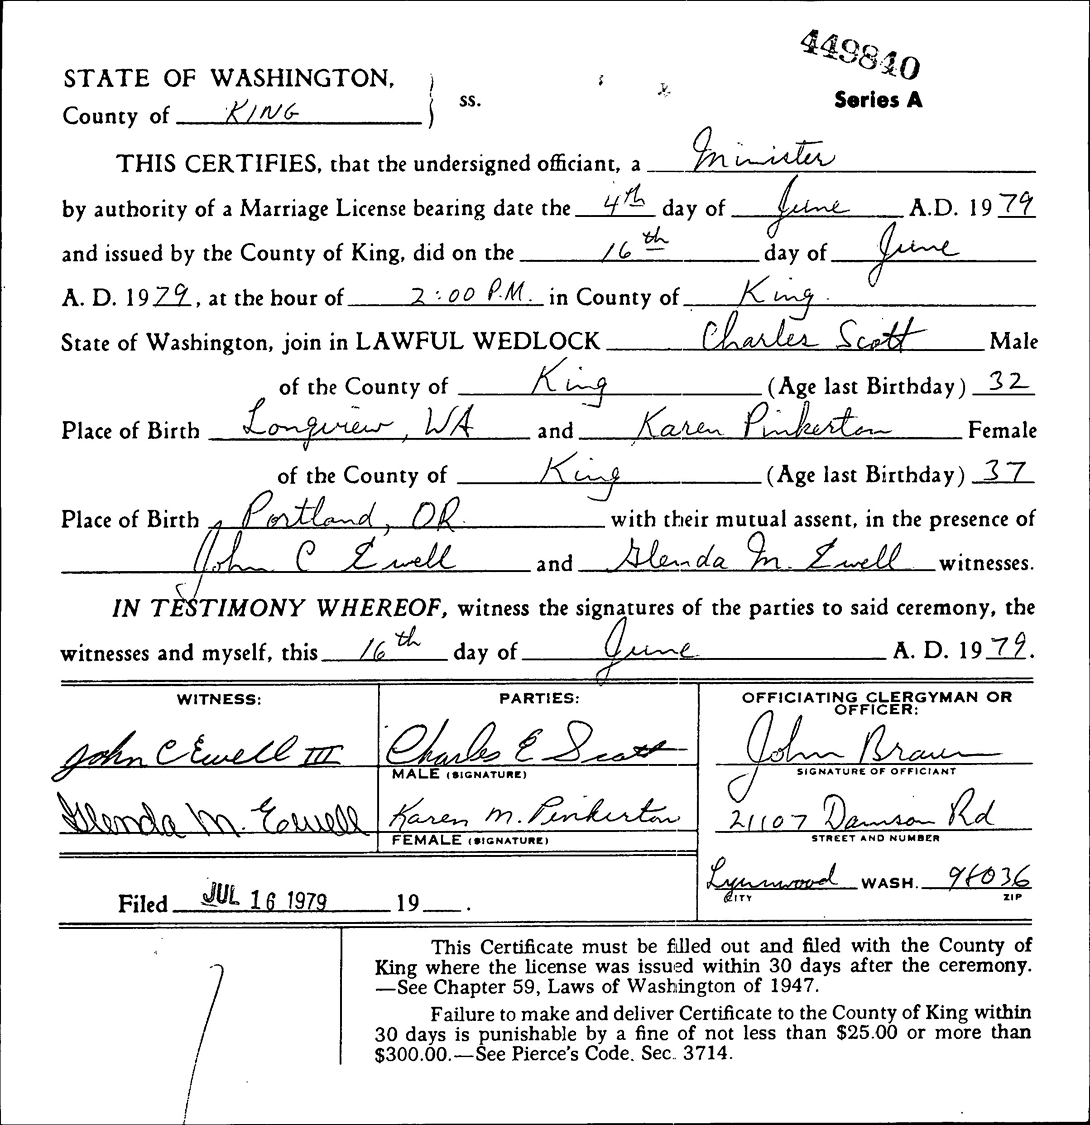 449840
Series A
STATE OF WASHINGTON,
County of KING } ss.
THIS CERTIFIES, that the undersigned officiant, a Minister
by authority of a Marriage License bearing date the 4th day of June A.D. 1979
and issued by the County of King, did on the 16th day of June
A. D. 1979, at the hour of 2:00 P.M. in County of King.
State of Washington, join in LAWFUL WEDLOCK Charles Scott Male
of the County of King (Age last Birthday) 32
Place of Birth Longview, WA and Karen Pinkerton Female
of the County of King (Age last Birthday) 37
Place of Birth Portland, OR. with their mutual assent, in the presence of
John C Ewell and Glenda M. Ewell witnesses.
IN TESTIMONY WHEREOF, witness the signatures of the parties to said ceremony, the
witnesses and myself, this 16th day of June A. D. 1979.
WITNESS:
John C Ewell III
Glenda M. Ewell
PARTIES:
Charles E Scott
MALE (SIGNATURE)
Karen M. Pinkerton
FEMALE (SIGNATURE)
OFFICIATING CLERGYMAN OR
OFFICER:
John Braun
SIGNATURE OF OFFICIANT
21107 Damson Rd
STREET AND NUMBER
Lynnwood WASH. 98036
CITY ZIP
Filed JUL 16 1979 19 .
This Certificate must be filled out and filed with the County of
King where the license was issued within 30 days after the ceremony.
—See Chapter 59, Laws of Washington of 1947.
Failure to make and deliver Certificate to the County of King within
30 days is punishable by a fine of not less than $25.00 or more than
$300.00.—See Pierce's Code. Sec. 3714.